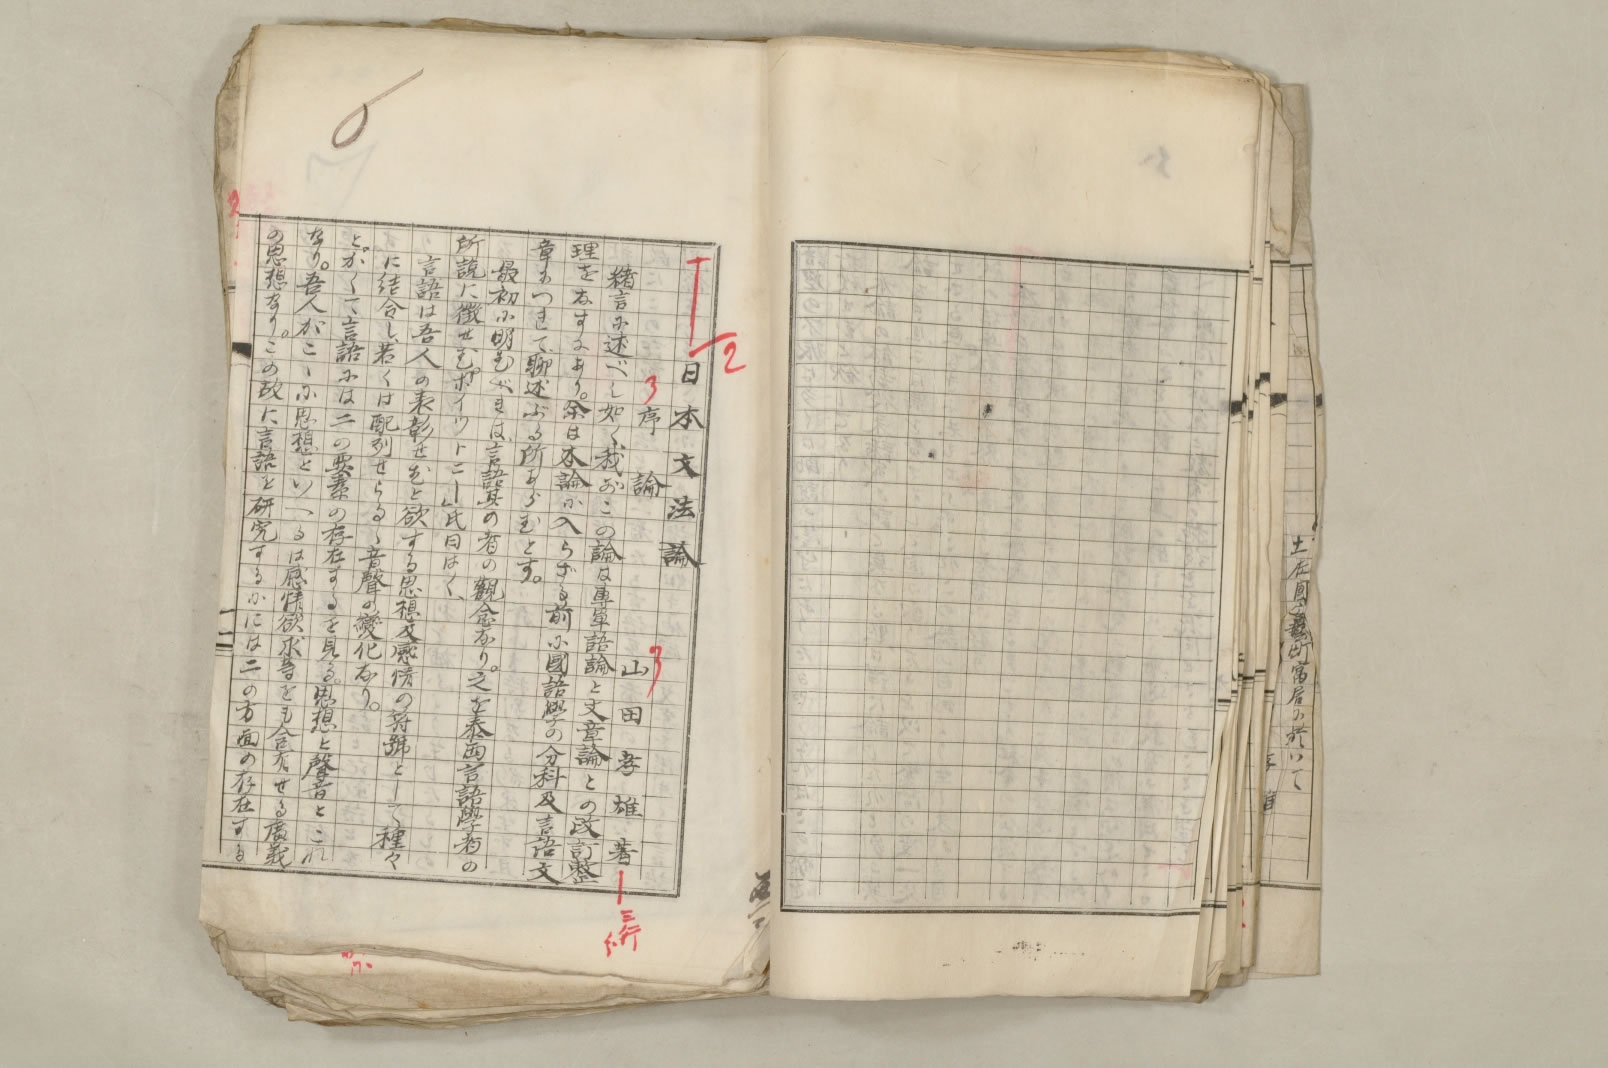 土佐國安藝町寓居に於いて
日本文法論
序論
山田孝雄著
緒言に述べし如く、我がこの論は專單語論と文章論との改訂整
理をなすにあり。余は本論に入らざる前に國語學の分科及言語文
章につきて聊述ぶる所あらむとす。
最初に明むべきは、言語其の者の觀念なり。之を泰西言語學者の
所説に徵せむ。ホイツトニー氏曰はく、
言語は吾人の表彰せむと欲する思想及感情の符號として種々
に結合し、若くは配列せらるゝ音聲の變化なり。
と。かくて言語には二の要素の存在するを見る。思想と聲音とこれ
なり。吾人がこゝに思想といへるは感情欲求等をも含有せる廣義
の思想なり。この故に言語を研究するにには二の方面の存在する
2
3
三行